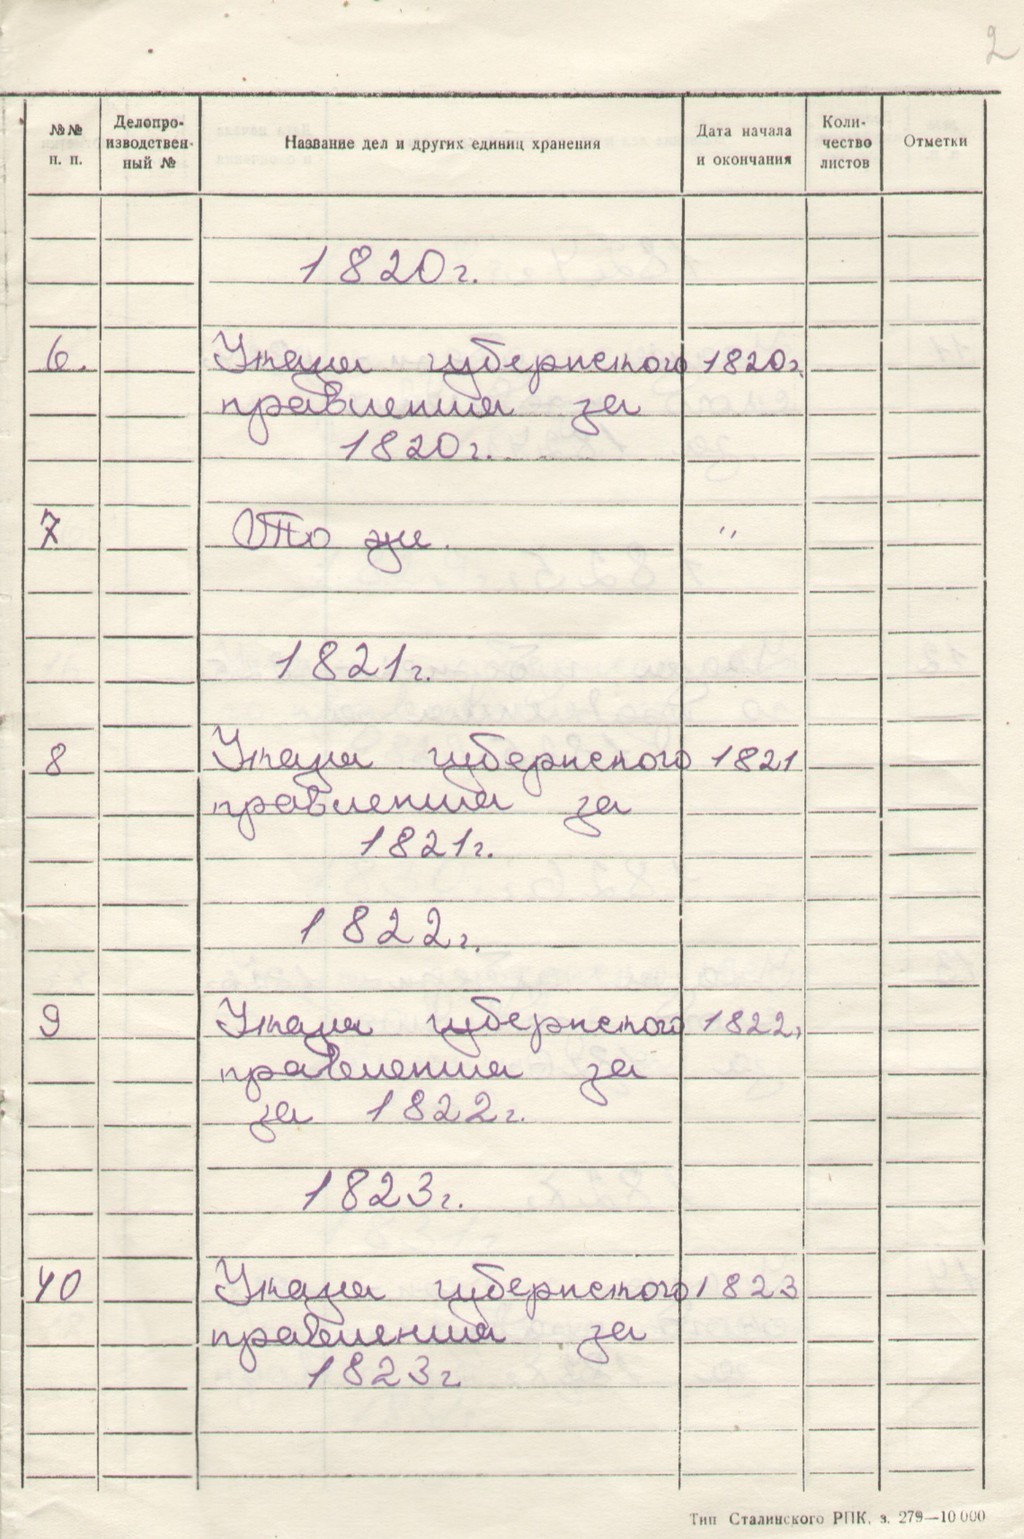 2
№№ п. п.
Делопро-
изводствен-
ный №
Название дел и других единиц хранения
Дата начала
и окончания
Коли-
чество
листов
Отметки
1820г.
6. Указы губернского 1820г.
правления за
1820г.
7 То же. "
1821г.
8 Указы губернского 1821
правления за
1821г.
1822г.
9 Указы губернского 1822г.
правления за
за 1822г.
1823г.
10 Указы губернского 1823
правления за
1823г.
Тип Сталинского РПК. з. 279—10 000